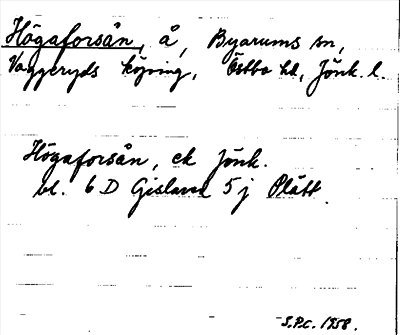 Högaforsån, å, Byarums sn,
Vaggeryds köping, Östbo hd, Jönk. l.
Högaforsån, ek Jönk.
bl. 6 D Gislaved 5 j Plätt
S.P.C. 1958.